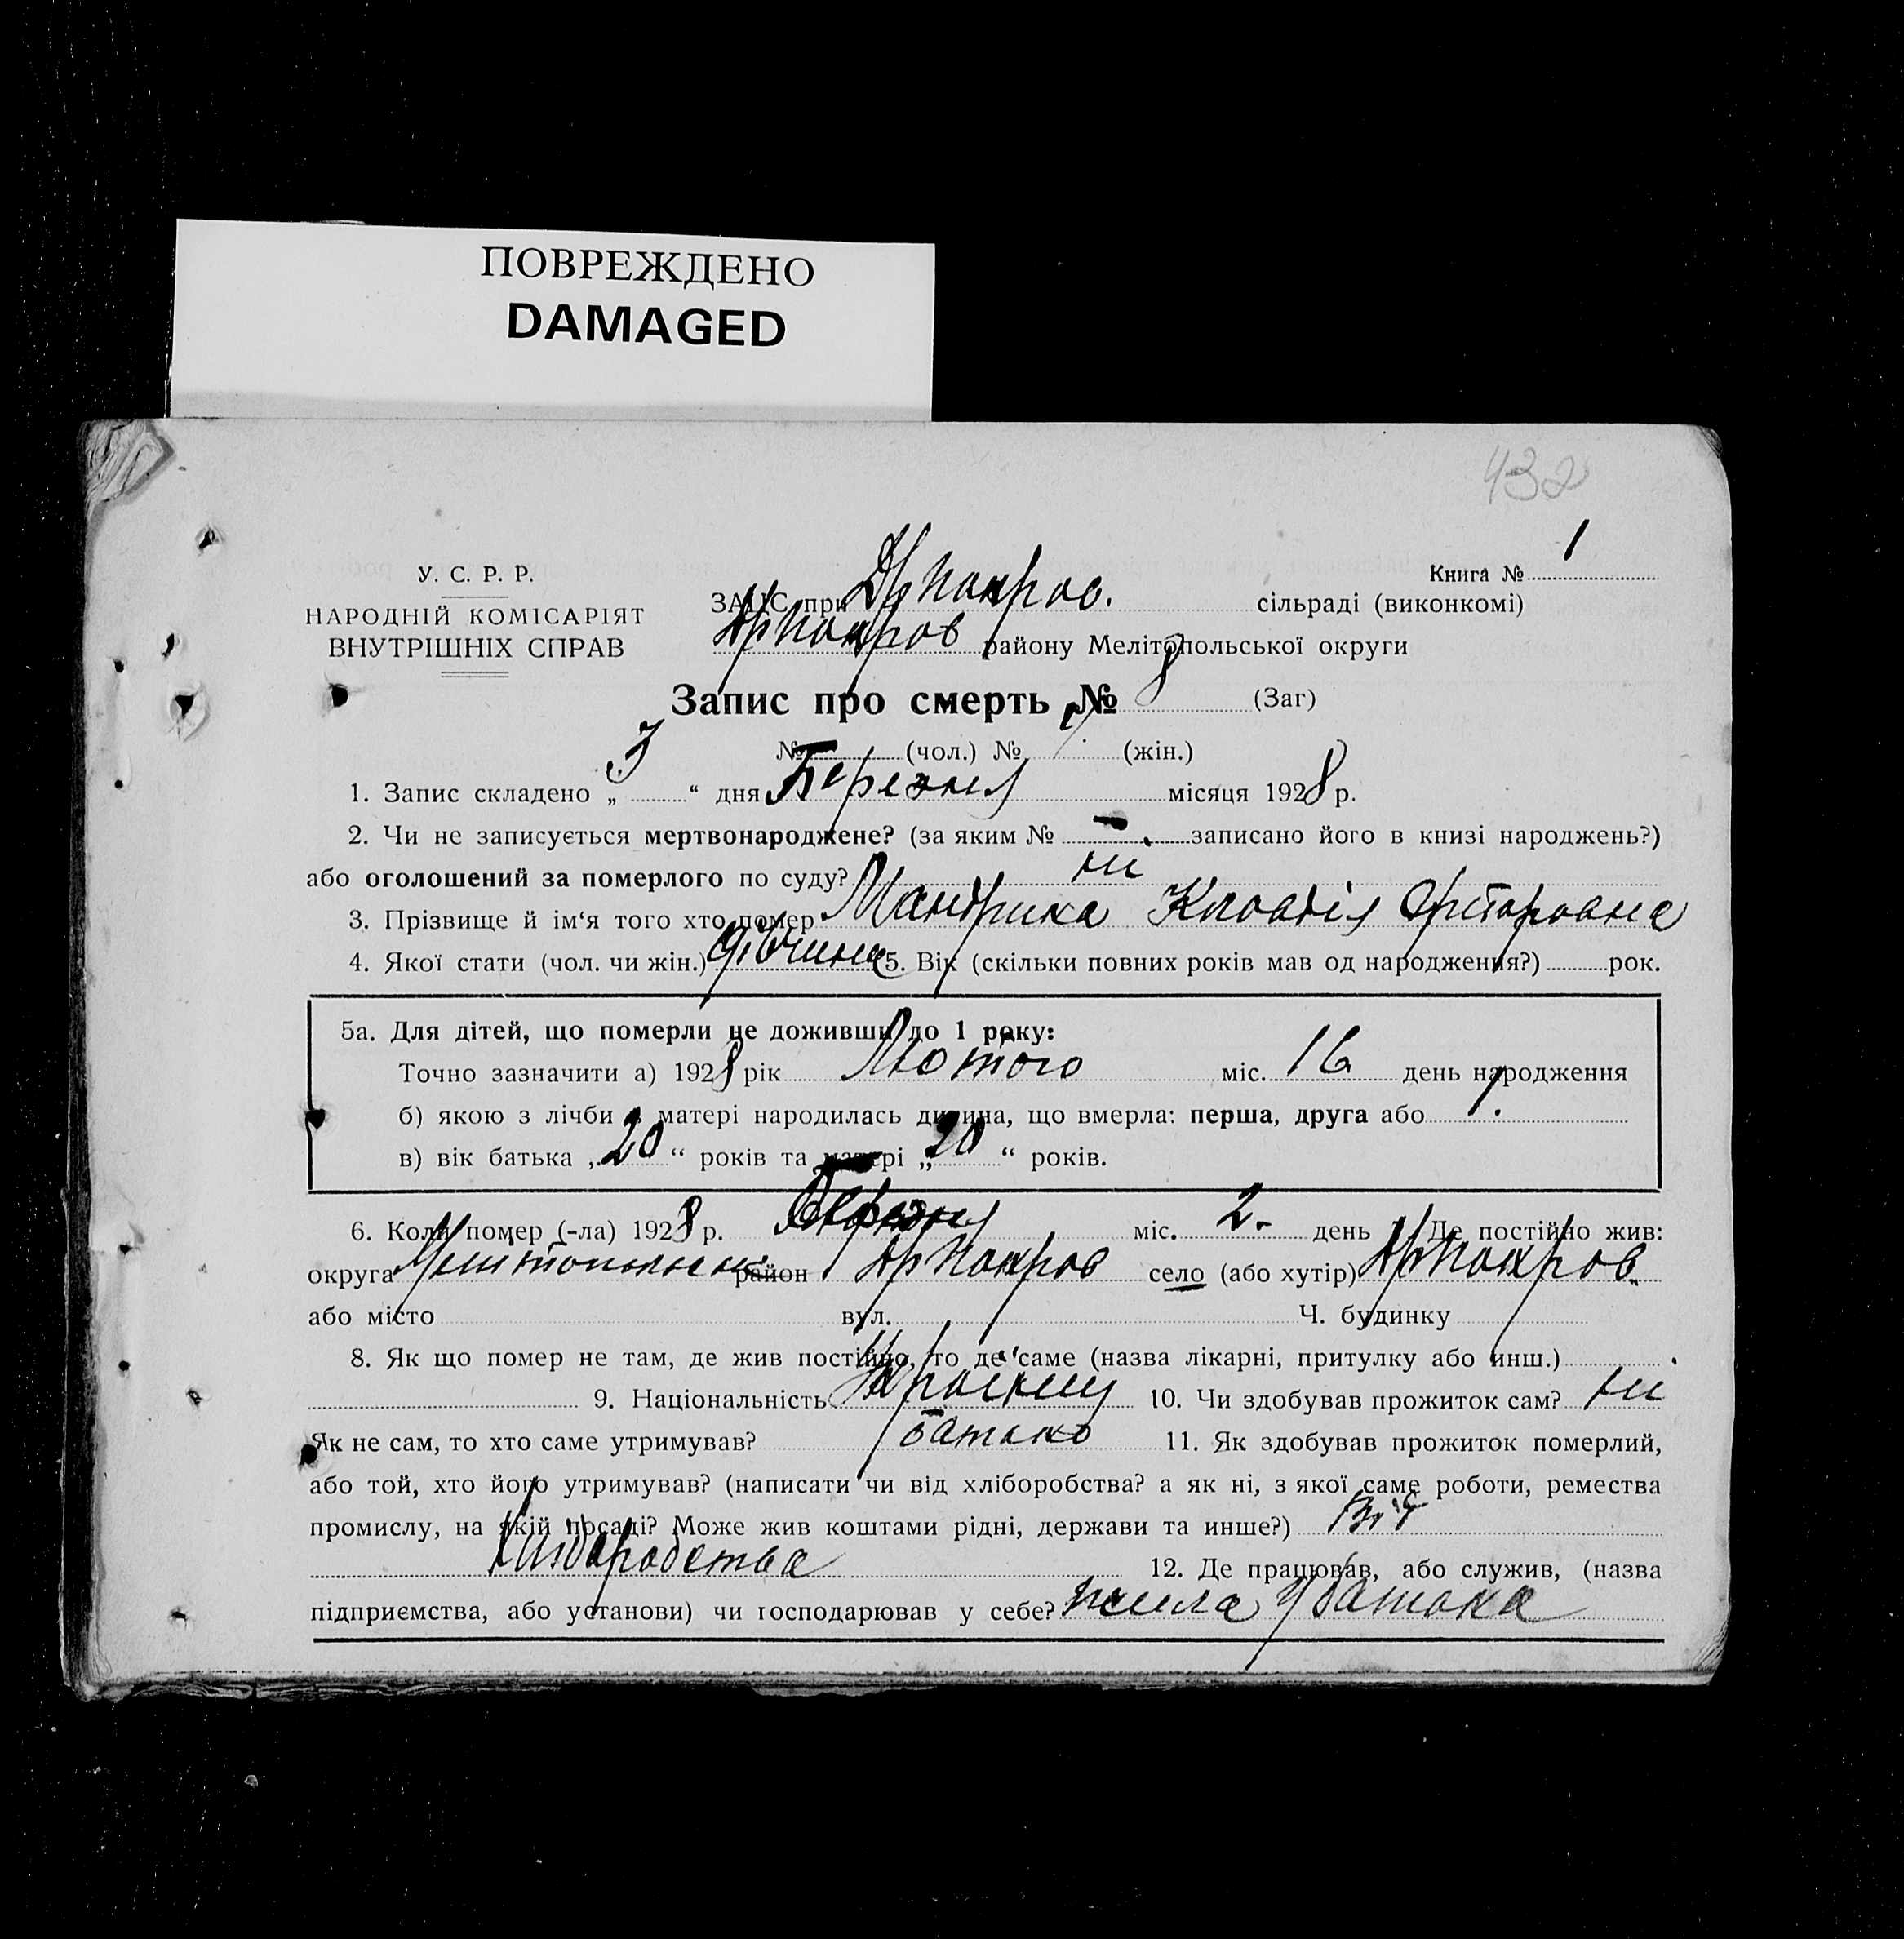 ПОВРЕЖДЕНО
DAMAGED
432
У. С. Р. Р.
НАРОДНІЙ КОМІСАРІЯТ
ВНУТРІШНІХ СПРАВ
Книга № 1
ЗАЦС при Др Покров. сільраді (виконкомі)
Др Покров району Мелітопольської округи
Запис про смерть № 8 (Заг)
№ (чол.) № (жін.)
1. Запис складено „ 3 “ дня Березня місяця 1928 р.
2. Чи не записується мертвонароджене? (за яким № - записано його в книзі народжень?)
або оголошений за померлого по суду? ні
3. Прізвище й ім‘я того хто помер Мандрика Клавдія
4. Якої стати (чол. чи жін.) дівчина 5. Вік (скільки повних років мав од народження?) рок.
5а. Для дітей, що померли не доживши до 1 року:
Точно зазначити а) 1928 рік Лютого міс. 16 день народження
б) якою з лічби в матері народилась дитина, що вмерла: перша, друга або 1.
в) вік батька „ 20 “ років та матері „ 20 “ років.
6. Коли помер (-ла) 1928 р. Березня міс. 2 - день 7. Де постійно жив:
округа Мелітопольськ район Др Покров село (або хутір) Др Покров.
або місто вул. Ч. будинку
8. Як що помер не там, де жив постійно, то де саме (назва лікарні, притулку або инш.)
9. Національність 10. Чи здобував прожиток сам? ні
Як не сам, то хто саме утримував? батько 11. Як здобував прожиток померлий,
або той, хто його утримував? (написати чи від хліборобства? а як ні, з якої саме роботи, ремества
промислу, на якій посаді? Може жив коштами рідні, держави та инше?) Від
Хліборобства 12. Де працював, або служив, (назва
підприємства, або установи) чи господарював у себе? жила у батька